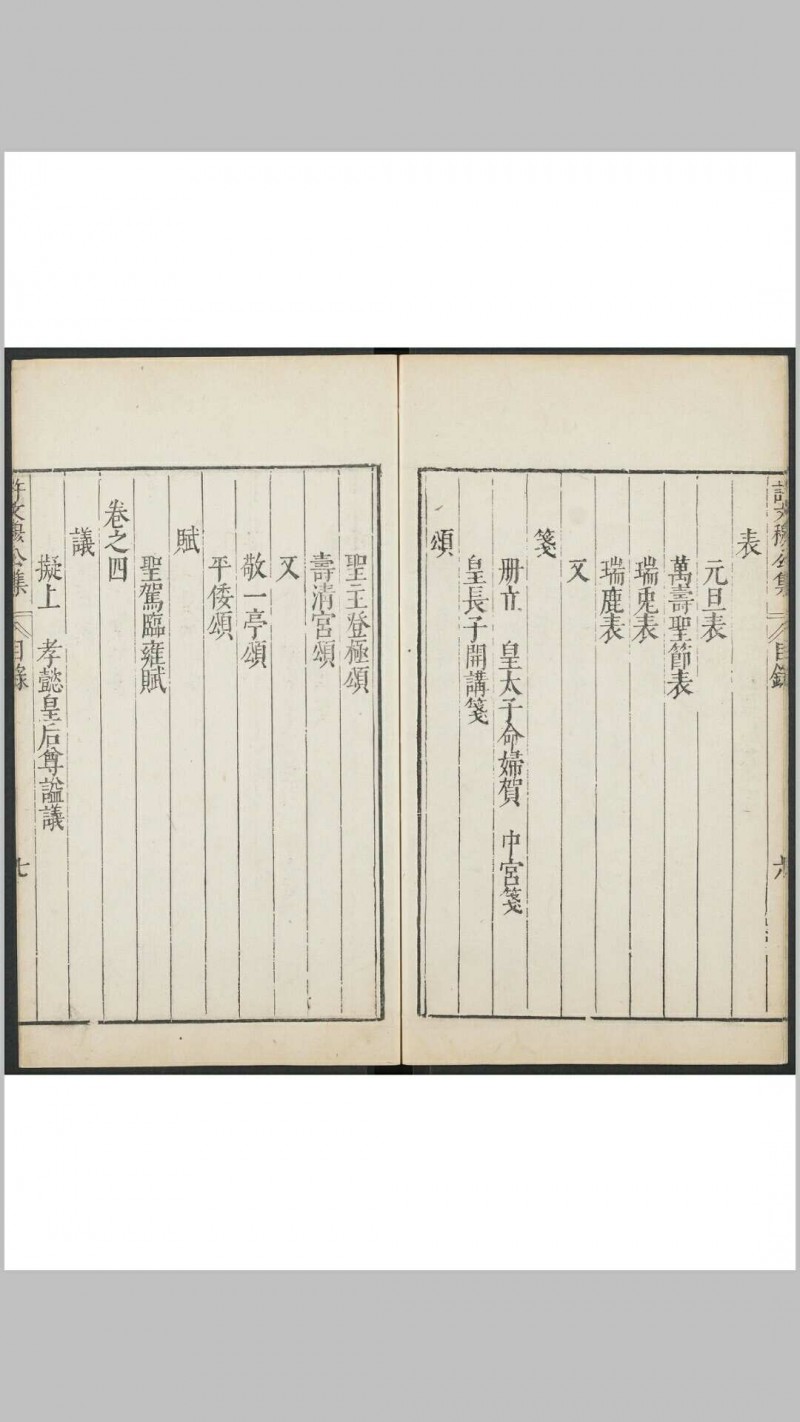 許文穆公集 目錄 六
表
元旦表
萬壽聖節表
瑞兎表
瑞鹿表
又
箋
冊立 皇太子命婦賀 中宮箋
皇長子開講箋
頌
聖主登極頌
壽清宮頌
又
敬一亭頌
平倭頌
賦
聖駕臨雍賦
卷之四
議
擬上 孝懿皇后尊謚議
許文穆公集 目錄 七